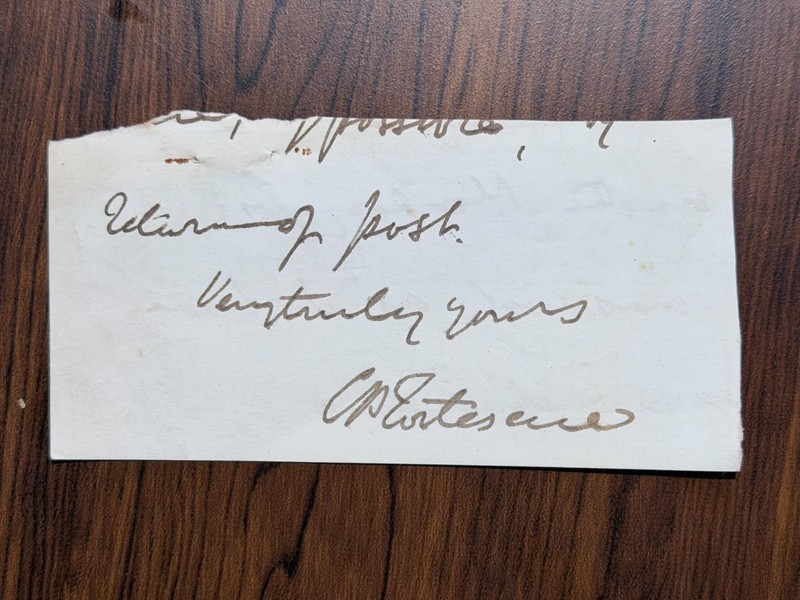 possible,
Return of post.
Very truly yours
C P Fortescue